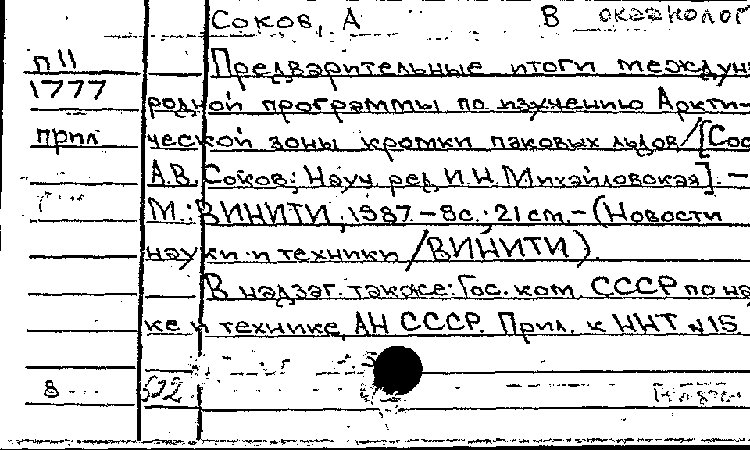 Соков, А В океанолог
П11 Предварительные итоги междун
1777 родной программы по изучению Аркти-
прил ческой зоны кромки паковых льдов /[Сос
А.В. Соков; Науч ред И.Н. Михайловская]. —
М.: ВИНИТИ, 1987 – 8с.; 21 см. – (Новости
науки и техники / ВИНИТИ)
В надзаг. также: Гос. ком. СССР по на
ке и технике, АН СССР. Прил. к ННТ №15
8 502